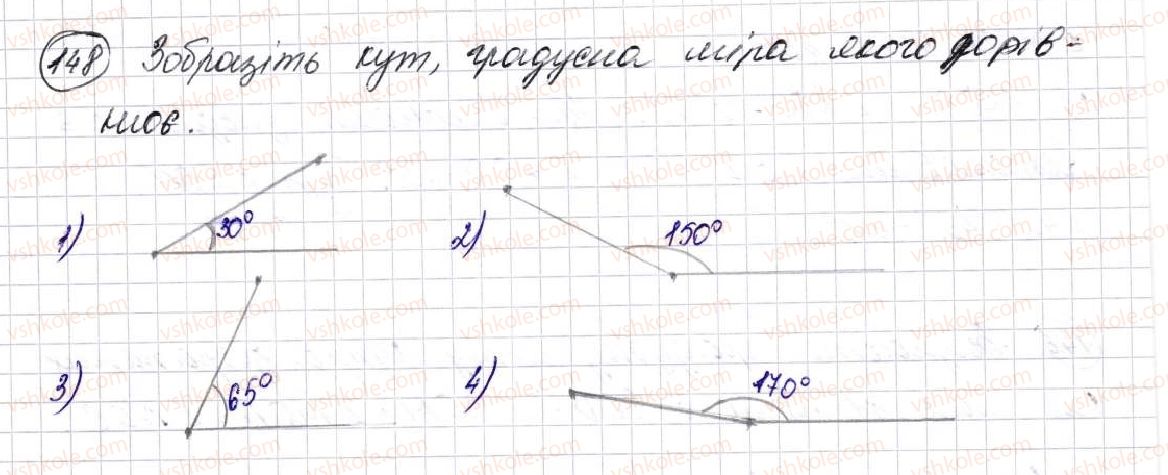 148 Зобразіть кут, градусна міра якого дорів-
нює.
1) 30° 2) 150°
3) 65° 4) 170°
vshkole.com